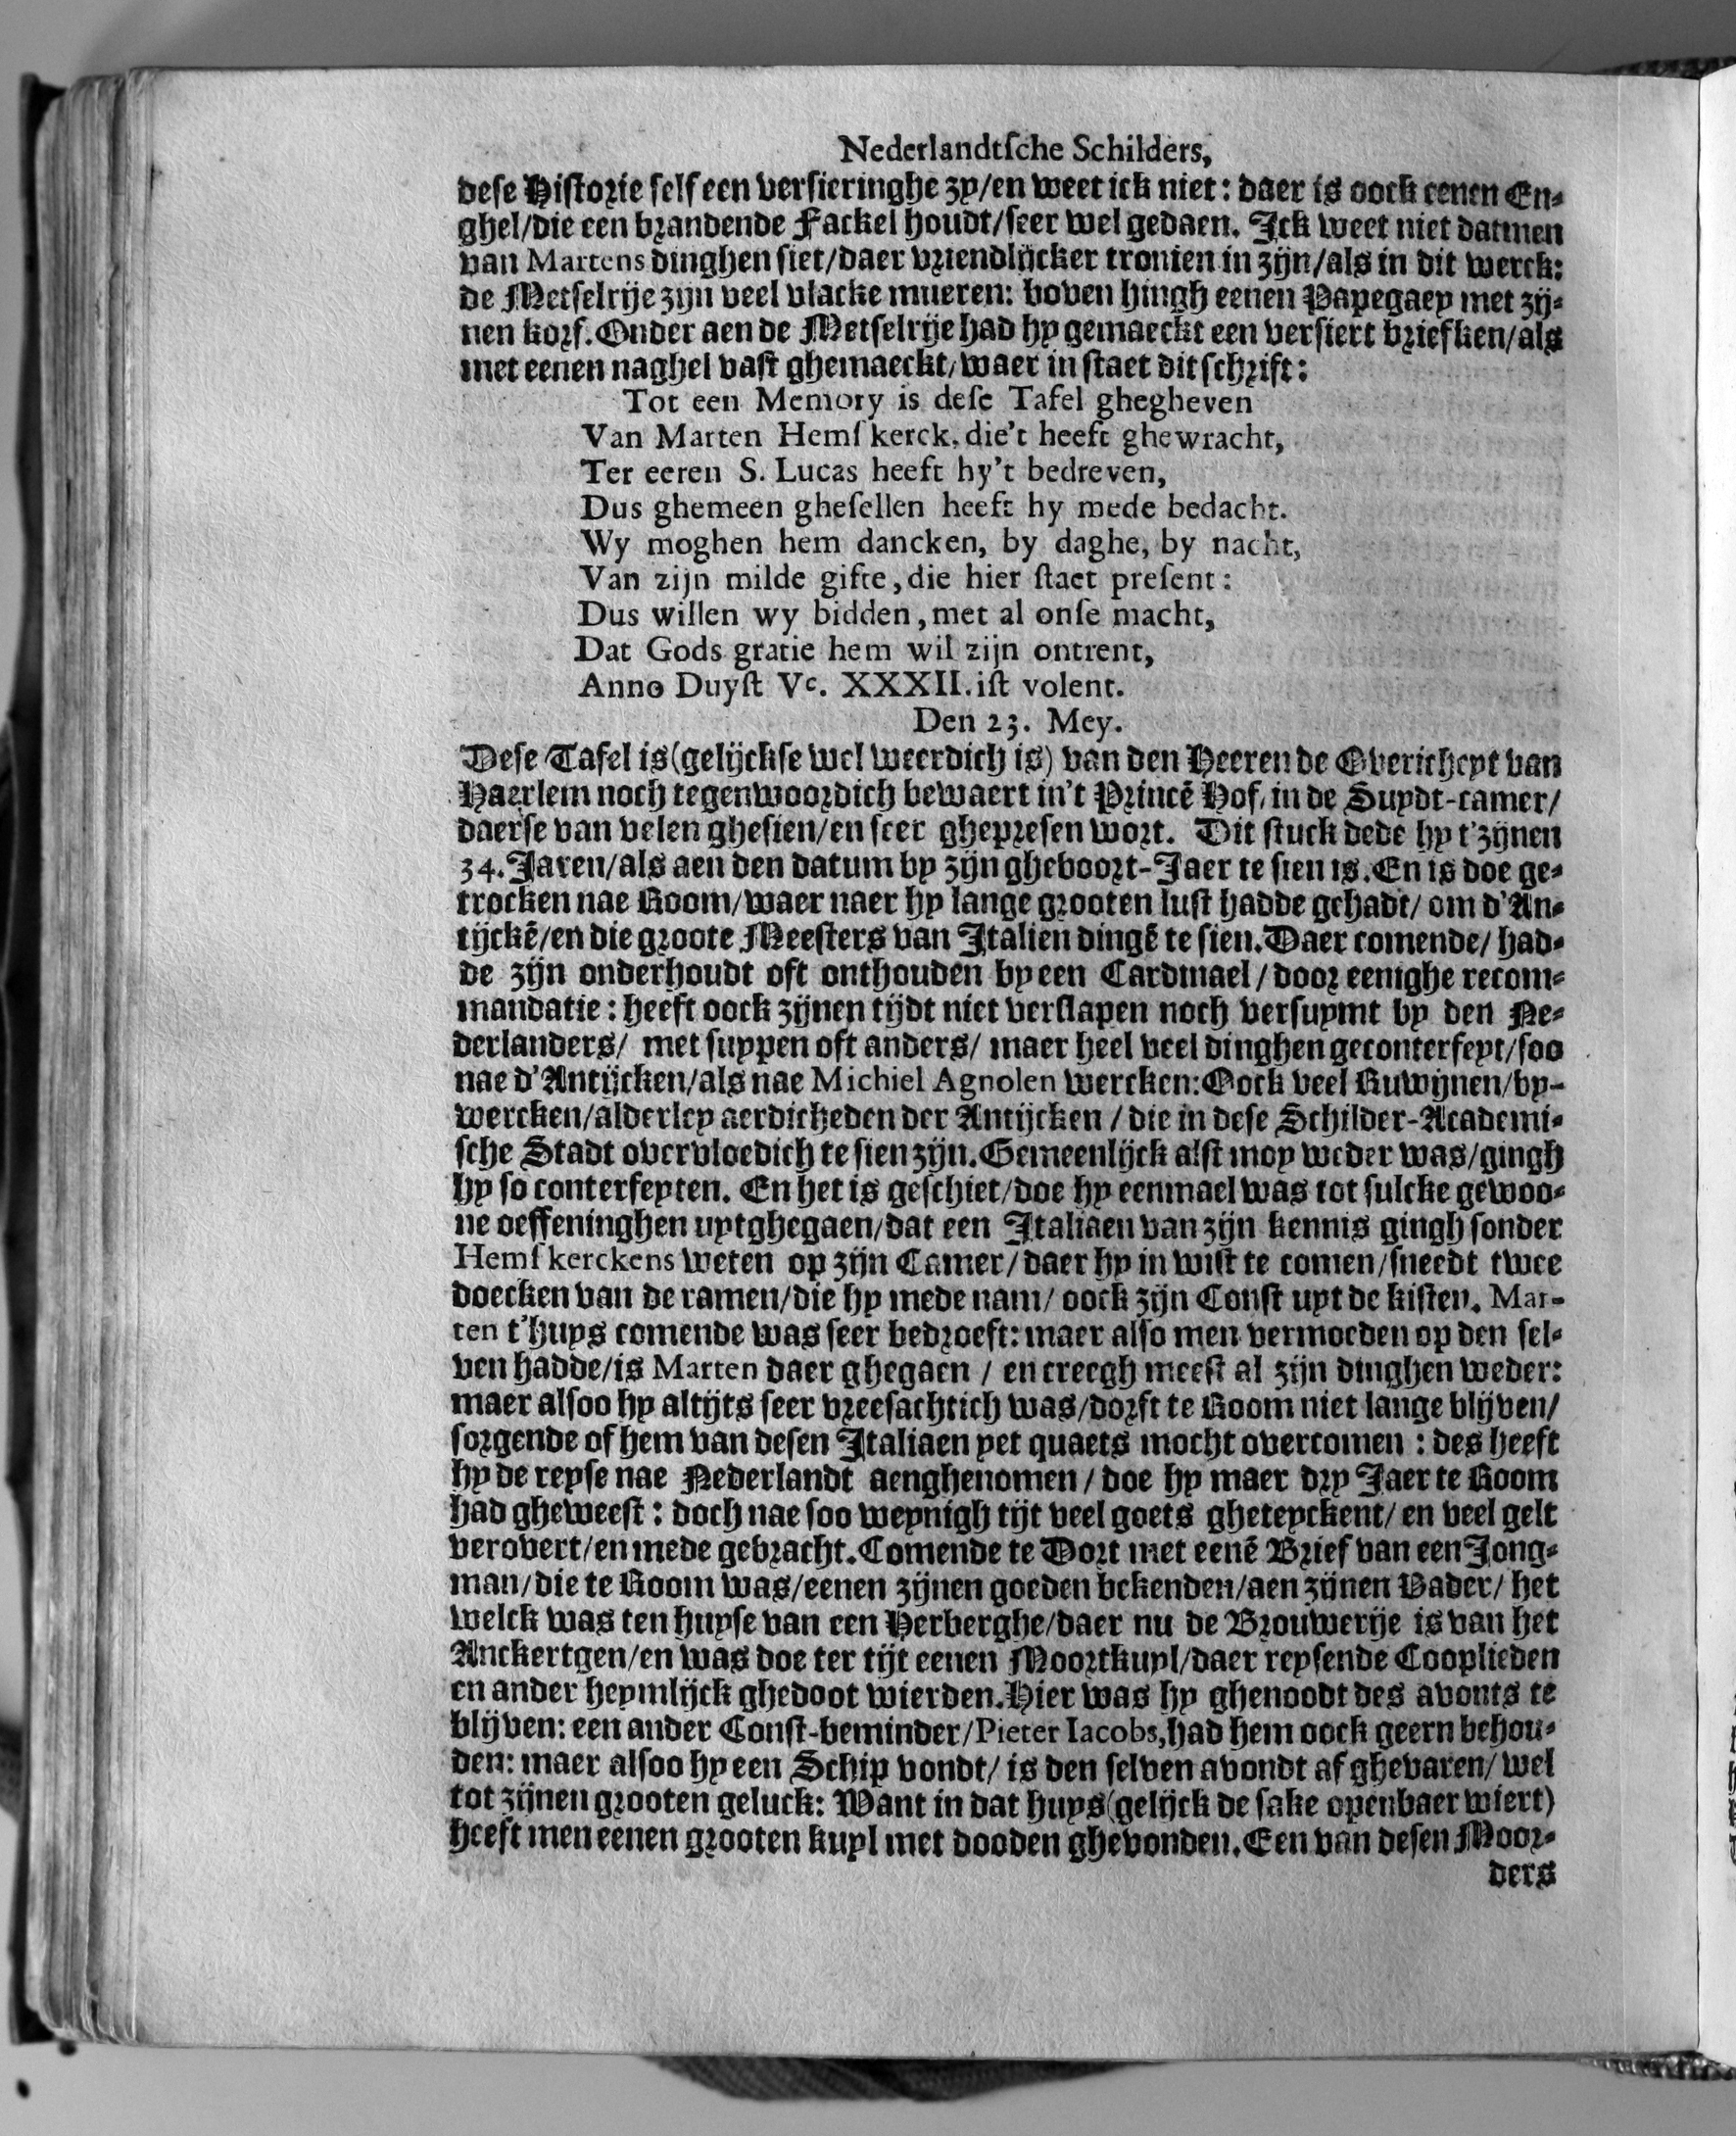 Nederlandtſche Schilders,
dese Historie self een versieringhe zy/en weet ick niet: daer is oock eenen En-
ghel/die een brandende Fackel houdt/seer wel gedaen. Ick weet niet datmen
van Martens dinghen siet/daer vriendlijcker tronien in zijn/als in dit werck:
de Metselrije zijn veel vlacke mueren: boven hingh eenen Papegaey met zij-
nen korf. Onder aen de Metselrije had hy gemaeckt een versiert briefken/als
met eenen naghel vast ghemaeckt/waer in staet dit schrift:
Tot een Memory is deſe Tafel ghegheven
Van Marten Hemſkerck, die't heeft ghewracht,
Ter eeren S. Lucas heeft hy't bedreven,
Dus ghemeen gheſellen heeft hy mede bedacht.
Wy moghen hem dancken, by daghe, by nacht,
Van zijn milde gifte, die hier ſtaet preſent:
Dus willen wy bidden, met al onſe macht,
Dat Gods gratie hem wil zijn ontrent,
Anno Duyſt Vc. XXXII. iſt volent.
Den 23. Mey.
Dese Tafel is (gelijckse wel weerdich is) van den Heeren de Overicheyt van
Haerlem noch tegenwoordich bewaert in't Princē Hof/in de Suydt-camer/
daerse van velen ghesien/en seer ghepresen wort. Dit stuck dede hy t'zijnen
34. Jaren/als aen den datum by zijn gheboort-Jaer te sien is. En is doe ge-
trocken nae Room/waer naer hy lange grooten lust hadde gehadt/om d'An-
tijckē/en die groote Meesters van Italien dingē te sien. Daer comende/had-
de zijn onderhoudt oft onthouden by een Cardinael/door eenighe recom-
mandatie: heeft oock zijnen tijdt niet verslapen noch versuymt by den Ne-
derlanders/ met suypen oft anders/ maer heel veel dinghen geconterfeyt/soo
nae d'Antijcken/als nae Michiel Agnolen wercken: Oock veel Ruwijnen/by-
wercken/alderley aerdicheden der Antijcken/die in dese Schilder-Academi-
sche Stadt overvloedich te sien zijn. Gemeenlijck alst moy weder was/gingh
hy so conterfeyten. En het is geschiet/doe hy eenmael was tot sulcke gewoo-
ne oeffeninghen uytghegaen/dat een Italiaen van zijn kennis gingh sonder
Hemſkerckens weten op zijn Camer/daer hy in wist te comen/sneedt twee
doecken van de ramen/die hy mede nam/ oock zijn Const uyt de kisten. Mar-
ten t'huys comende was seer bedroeft: maer also men vermoeden op den sel-
ven hadde/is Marten daer ghegaen/en creegh meest al zijn dinghen weder:
maer alsoo hy altijts seer vreesachtich was/dorft te Room niet lange blijven/
sorgende of hem van desen Italiaen yet quaets mocht overcomen: des heeft
hy de reyse nae Nederlandt aenghenomen/doe hy maer dry Jaer te Room
had gheweest: doch nae soo weynigh tijt veel goets gheteyckent/ en veel gelt
verovert/en mede gebracht. Comende te Dort met eenē Brief van een Jong-
man/die te Room was/eenen zijnen goeden bekenden/aen zijnen Vader/ het
welck was ten huyse van een Herberghe/daer nu de Brouwerije is van het
Anckertgen/en was doe ter tijt eenen Moortkuyl/daer reysende Cooplieden
en ander heymlijck ghedoot wierden. Hier was hy ghenoodt des avonts te
blijven: een ander Const-beminder/Pieter Iacobs, had hem oock geern behou-
den: maer alsoo hy een Schip vondt/ is den selven avondt af ghevaren/ wel
tot zijnen grooten geluck: Want in dat huys (gelijck de sake openbaer wiert)
heeft men eenen grooten kuyl met dooden ghevonden. Een van desen Moor-
ders